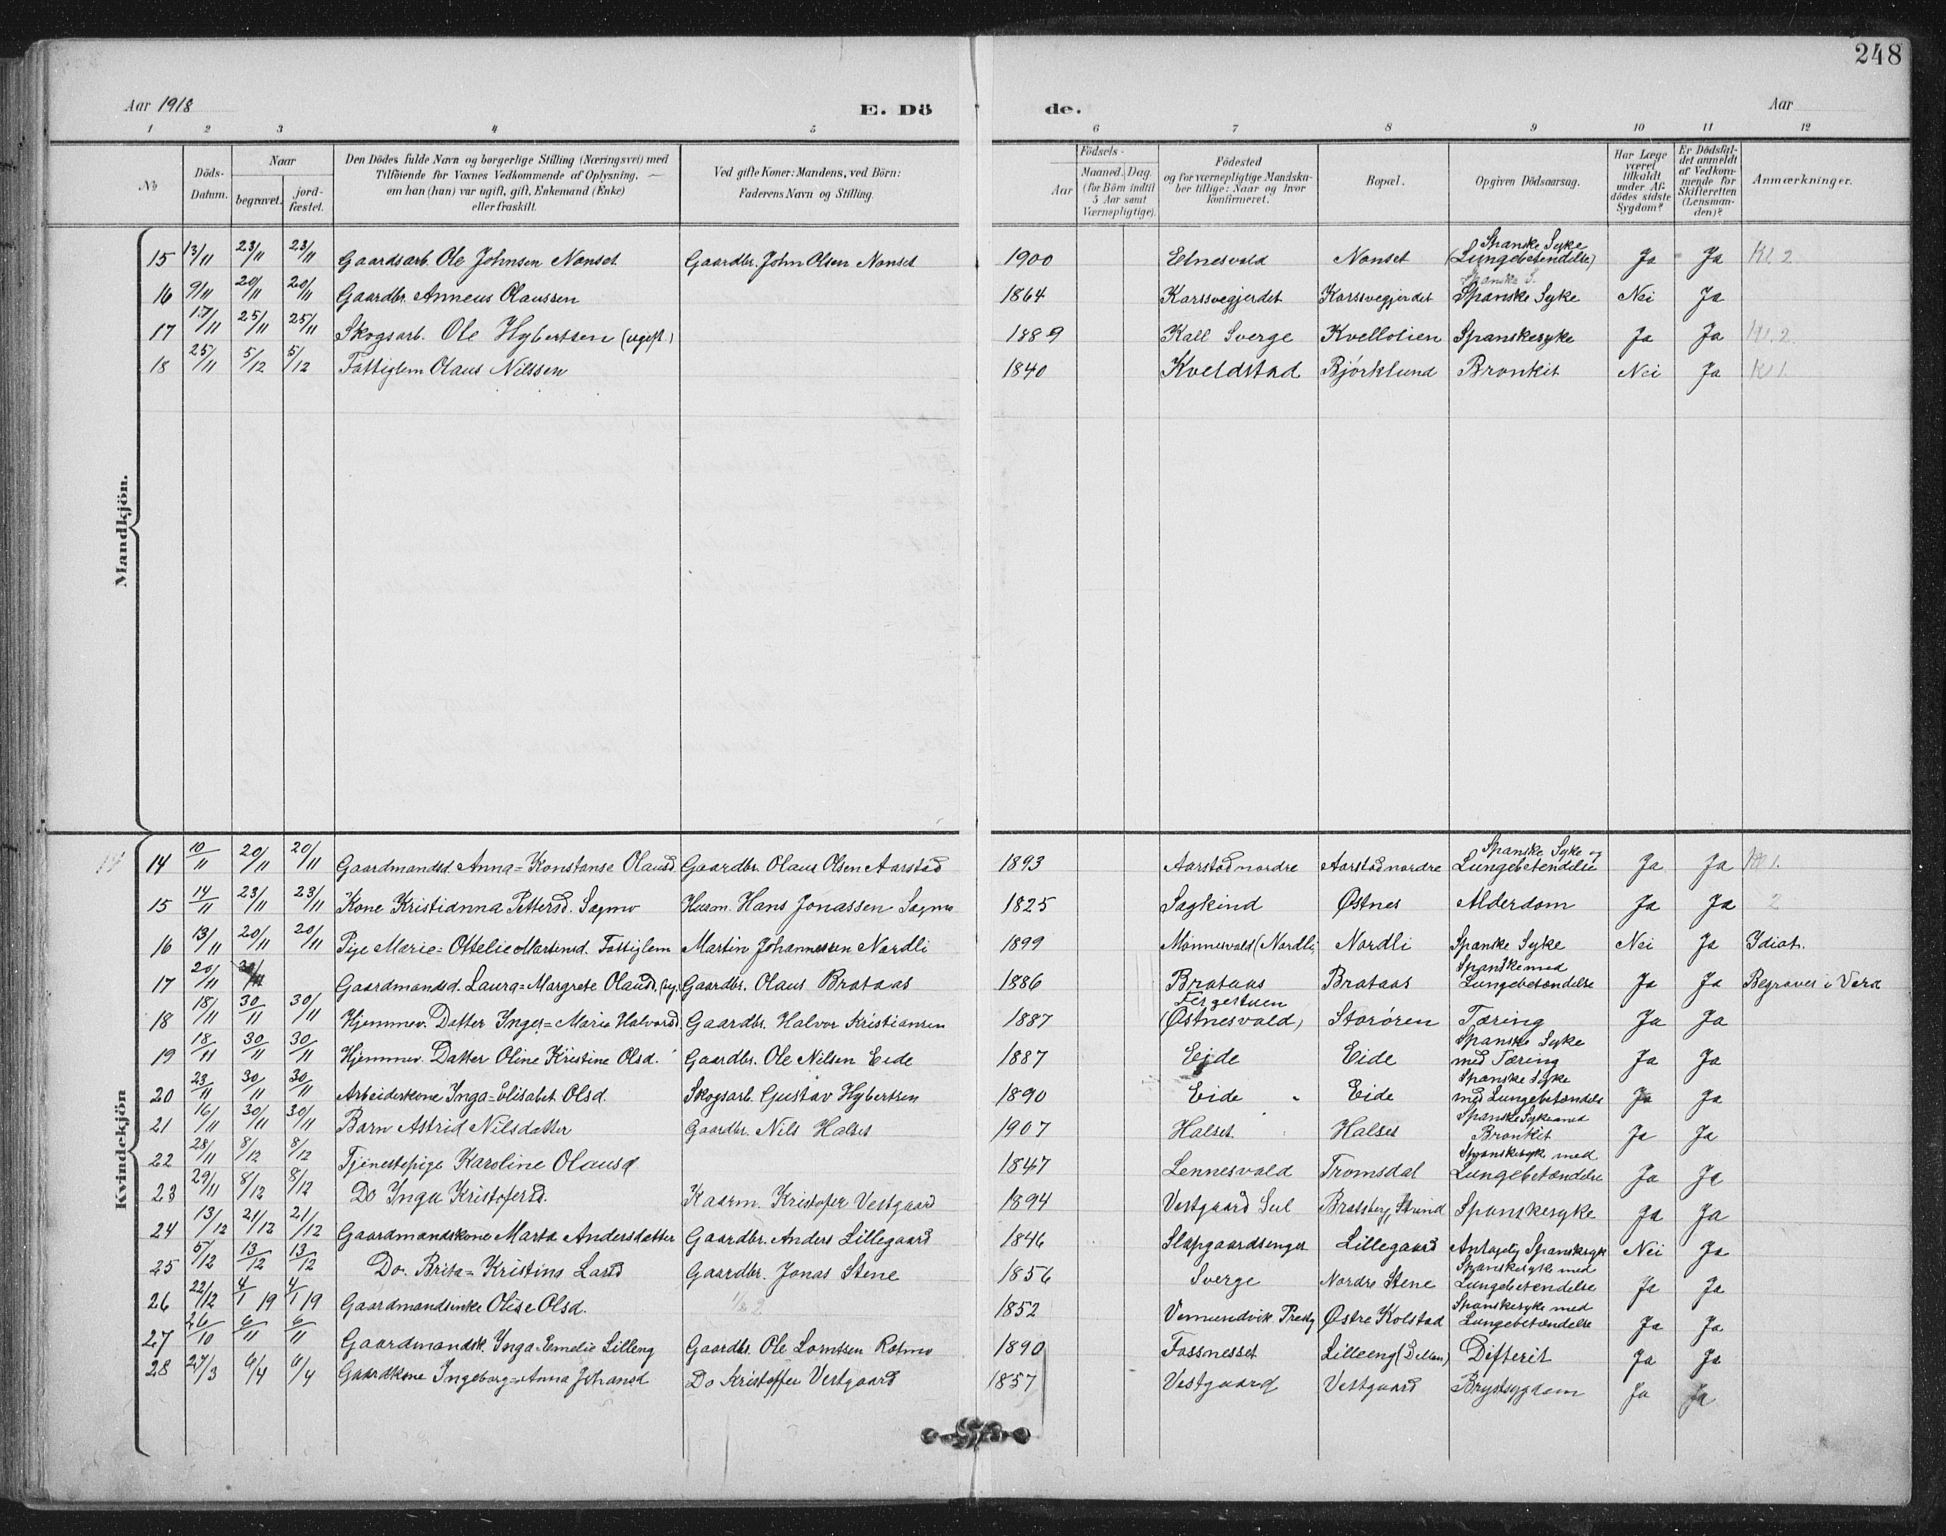 248
Aar 1918 E. Dö de. Aar
1 2 3 4 5 6 7 8 9 10 11 12
No Döds-Datum. Naar begravet. jordfæstet. Den Dödes fulde Navn og borgerlige Stilling (Næringsvei) med Tilföiende for Voxnes Vedkommende af Oplysning, om han (hun) var ugift, gift, Enkemand (Enke) eller fraskilt. Ved gifte Koner: Mandens, ved Börn: Faderens Navn og Stilling. Födsels- Aar Maaned. Dag. (for Börn indtil 5 Aar samt Værnepligtige). Födested og for værnepligtige Mandskaber tillige: Naar og hvor konfirmeret. Bopæl. Opgiven Dödsaarsag. Har Læge været tilkaldt under Afdödes sidste Sygdom? Er Dödsfaldet anmeldt af Vedkommende for Skifteretten (Lensmanden)? Anmærkninger.
Mandkjön.
15 13/11 23/11 23/11 Gaardsarb. Ole Johnsen Nonset Gaardbr. John Olsen Nonset 1900 Elnesvald Nonset Spanske Syke (Lungebetendelse) Ja Ja Kl 2
16 9/11 20/11 20/11 Gaardbr Anneus Olaussen 1864 Karsvegjerdet Karsvegjerdet Spanske S. Spanske Syke Nei Ja
17 17/11 25/11 25/11 Skogsarb. Ole Hybertsen (ugift.) 1889 Kall Sverge Kvellolien Spanskesyke Ja Ja Kl. 2.
18 25/11 5/12 5/12 Fattiglem Olaus Nilssen 1840 Kveldstad Björklund Bronkit Nei Ja Kl 1.
Kvindekjön
14 14 10/11 20/11 20/11 Gaardmandsd. Anna=Konstanse Olausd. Gaardbr. Olaus Olsen Aarstad 1893 Aarstad nordre Aarstad nordre Spanske Syke og Lungebetendelse Ja Ja Kl 1.
15 14/11 23/11 23/11 Kone Kristianna Pettersd. Sagmo Husm. Hans Jonassen Sagmo 1825 Sagkind Østnes Alderdom Ja Ja 2
16 13/11 20/11 20/11 Pige Marie=Ottelie Martinsd. Fattiglem Martin Johannessen Nordli 1899 Mönnesvald (Nordli) Nordli Spanske Syke Nei Ja Idiot.
17 20/11 Gaardmandsd. Laura=Margrete Olausd. (ug. Gaardbr. Olaus Brataas 1886 Brataas Brataas Spanske med Lungebetændelse Ja Ja Begraves i Vera
18 18/11 30/11 30/11 Hjemmev. Datter Inger=Marie Halvorsd. Gaardbr. Halvor Kristiansen 1887 Fergestuen (Østnesvald) Storören Tæring Ja Ja
19 18/11 30/11 30/11 Hjemmev. Datter Oline Kristine Olsd. Gaardbr. Ole Nilsen Eide 1887 Eide Eide Spanske Syke med Tæring Ja Ja
20 23/11 30/11 30/11 Arbeiderkone Inga=Elisabet Olsd. Skogsarb. Gustav Hybertsen 1890 Eide Eide Spanske Syke med Lungebetændelse Ja Ja
21 16/11 30/11 30/11 Barn Astrid Nilsdatter Gaardbr. Nils Halset 1907 Halset Halset Spanske Syke med Bronkit Ja Ja
22 28/11 8/12 8/12 Tjenestepige Karoline Olausd 1847 Lennesvald Tromsdal Spanskesyk med Lungebetændelse Ja Ja
23 29/11 8/12 8/12 Do Inga Kristofersd. Kaarm. Kristofer Vestgaard 1894 Vestgaard Sul Bratsberg, Strind Spanskesyke Ja Ja
24 13/12 21/12 21/12 Gaardmandskone Marta Andersdatter Gaardbr. Anders Lillegaard 1846 Slapgaardsenget Lillegaard Antagelig Spanskesyk Nei Ja
25 5/12 13/12 13/12 Do. Brita=Kristina Larsd Gaardbr. Jonas Stene 1856 Sverge Nordre Stene Spanskesyke med Lungebetendelse Ja Ja
26 22/12 4/1 19 4/1 19 Gaardmandsenke Olise Olsd. 1852 Vemundvik Prestg Østre Kolstad Spanskesyke med Lungebetændelse Ja Ja
27 26/10 6/11 6/11 Gaardmandsk. Inga Emelie Lilleng Gaardbr. Ole Lorntsen Rotmo 1890 Fossnesset Lilleeng Difterit Ja Ja
28 27/3 6/4 6/4 Gaardkone Ingeborg=Anna Johansd Do Kristoffer Vestgaard 1857 Vestgaard Vestgaard Brystsygdom Ja Ja